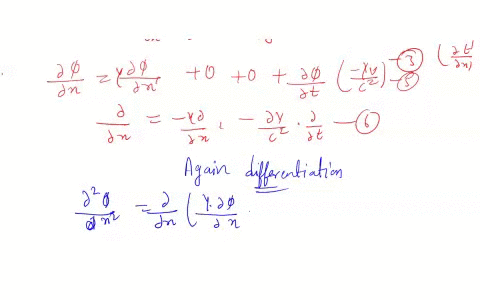 ∂φ/∂x = γ∂φ/∂x' + 0 + 0 + ∂φ/∂t (-γv/c²) — ③ (∂t'/∂x)
⑤
∂/∂x = -γ∂/∂x' - ∂γ/c² · ∂/∂t — ⑥
Again differentiation
∂²φ/∂x² = ∂/∂x (γ·∂φ/∂x